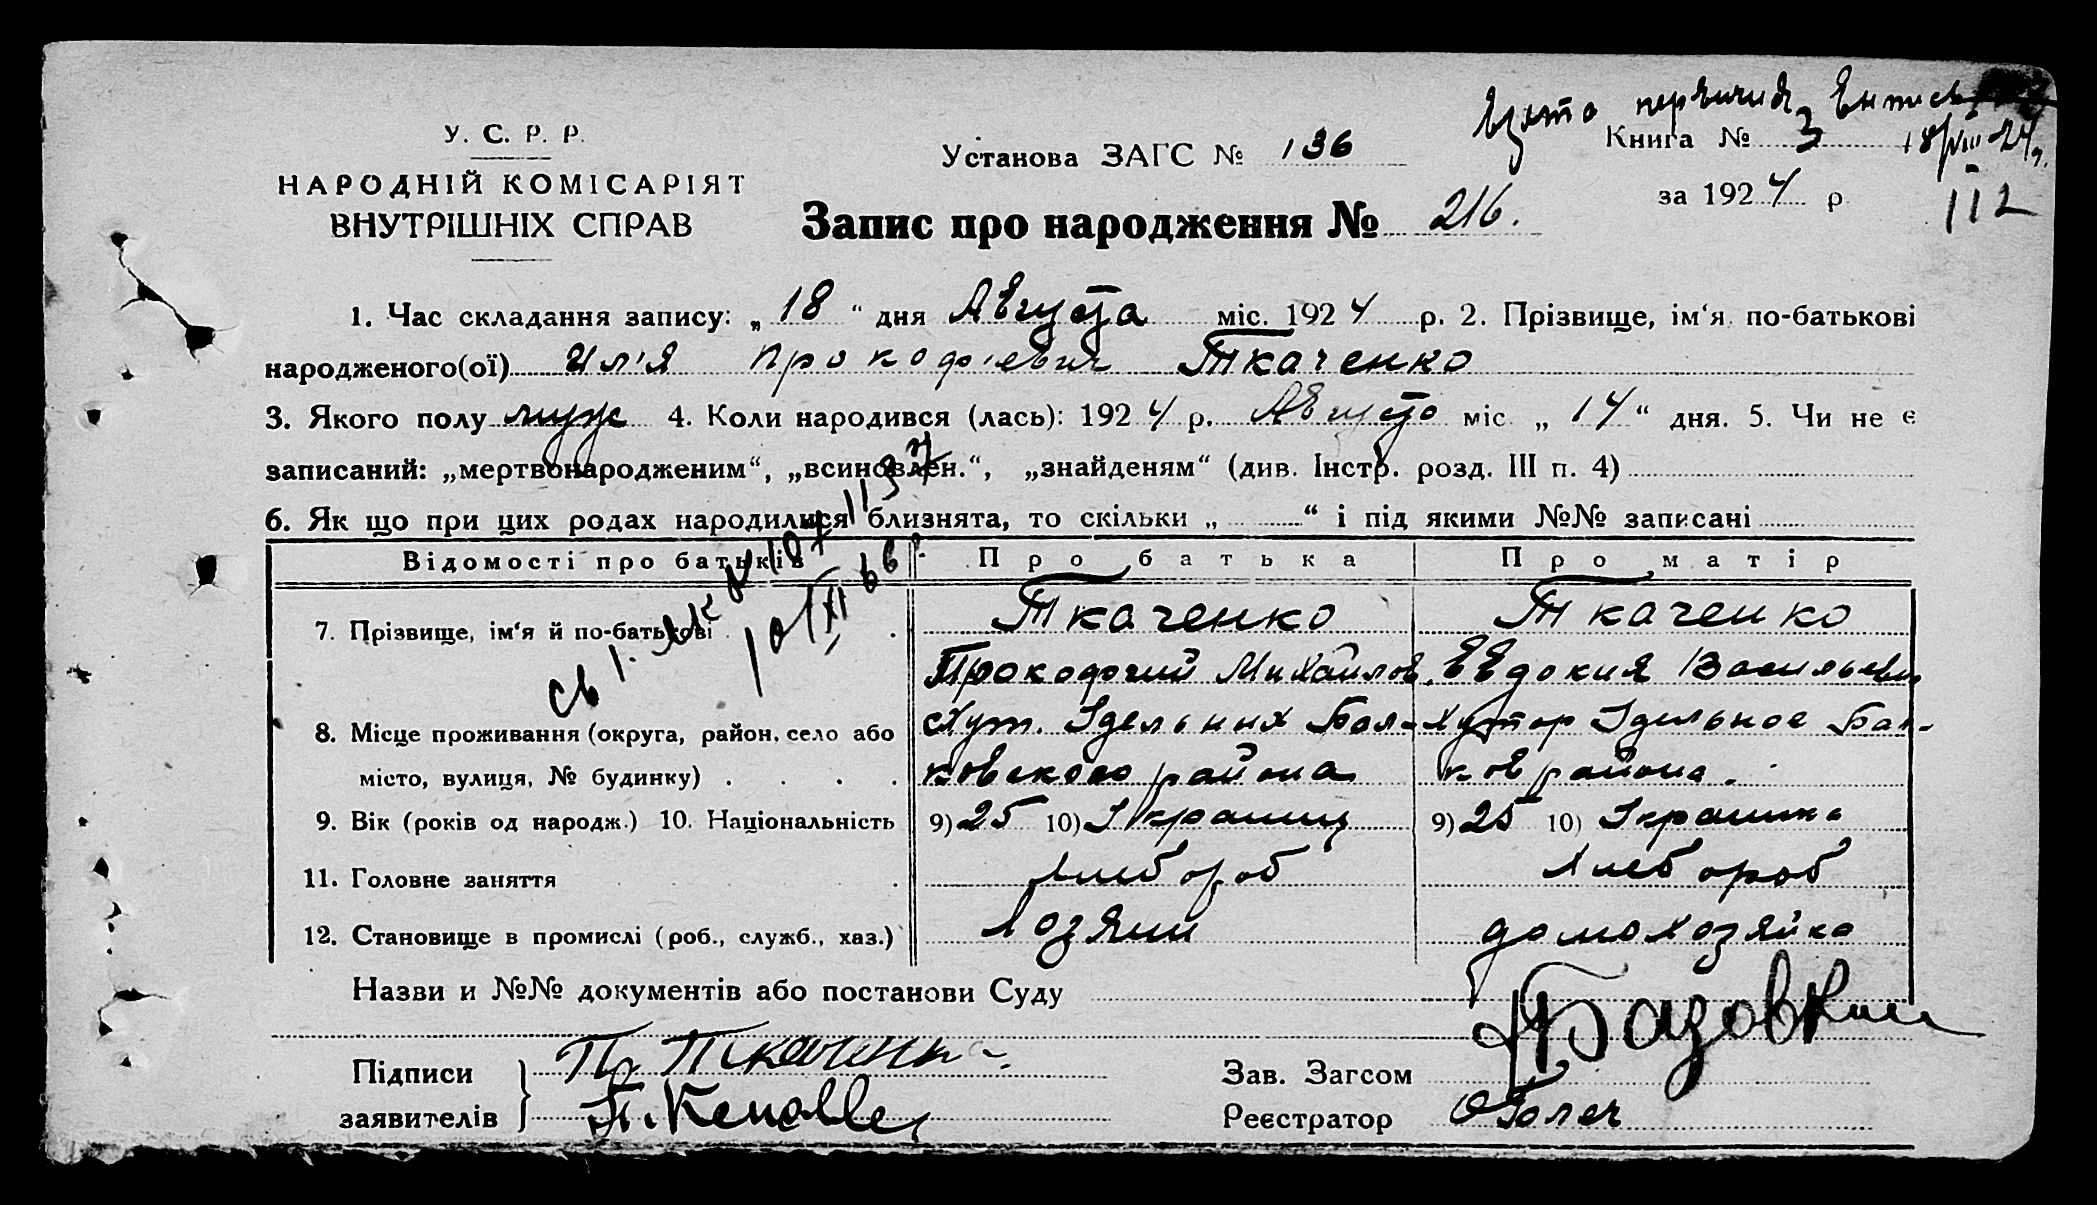 Взято первичн. Выпись
У. С. Р. Р.
НАРОДНІЙ КОМІСАРІЯТ
ВНУТРІШНІХ СПРАВ
Установа ЗАГС № 136
Книга № 3
18/VIII 24 г.
за 1924 р
112
Запис про народження № 216.
1. Час складання запису: „18“ дня Августа міс. 1924 р. 2. Прізвище, ім‘я по-батькові
народженого(ої) Ил'я Прокофіевич Ткаченко
3. Якого полу муж 4. Коли народився (лась): 1924 р. Августа міс „14“ дня. 5. Чи не є
записаний: „мертвонародженим“, „всиновлен.“, „знайденям“ (див. Інстр. розд. III п. 4)
6. Як що при цих родах народилися близнята, то скільки „ “ і під якими №№ записані
Відомості про батьків Про батька Про матір
7. Прізвище, ім‘я й по-батькові Ткаченко Ткаченко
Прокофий Михайлов. Евдокия Васильевн
8. Місце проживання (округа, район, село або Хут. Удельных Бал- Хутор Удельное Бал-
місто, вулиця, № будинку) ковского района ков района.
9. Вік (років од народж.) 10. Національність 9) 25 10) Украинец 9) 25 10) Украинка
11. Головне заняття Хлебороб Хлебороб
12. Становище в промислі (роб., служб., хаз.) Хозяин домохозяйка
Назви и №№ документів або постанови Суду
Підписи П. Ткаченко
заявителів
Зав. Загсом
Реєстратор